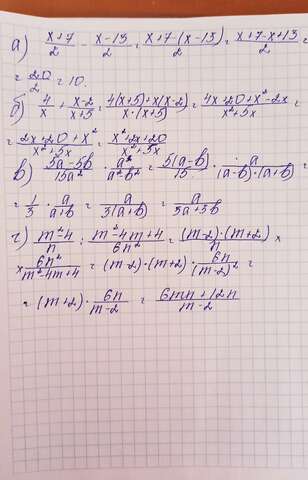 а) \frac{x+7}{2} - \frac{x-13}{2} = \frac{x+7-(x-13)}{2} = \frac{x+7-x+13}{2} =
= \frac{20}{2} = 10.
б) \frac{4}{x} + \frac{x-2}{x+5} = \frac{4(x+5)+x(x-2)}{x·(x+5)} = \frac{4x+20+x²-2x}{x²+5x} =
= \frac{2x+20+x²}{x²+5x} = \frac{x²+2x+20}{x²+5x}
в) \frac{5a-5b}{15a²} · \frac{a²}{a²-b²} = \frac{5(a-b)}{15} · \frac{a}{(a-b)·(a+b)} =
= \frac{1}{3} · \frac{a}{a+b} = \frac{a}{3(a+b)} = \frac{a}{3a+3b}
г) \frac{m²4}{n} : \frac{m²4m+4}{6n²} = \frac{(m-2)·(m+2)}{n} ×
× \frac{6n²}{m²4m+4} = (m-2)·(m+2)· \frac{6n}{(m-2)²} =
= (m+2)· \frac{6n}{m-2} = \frac{6mn+12n}{m-2}